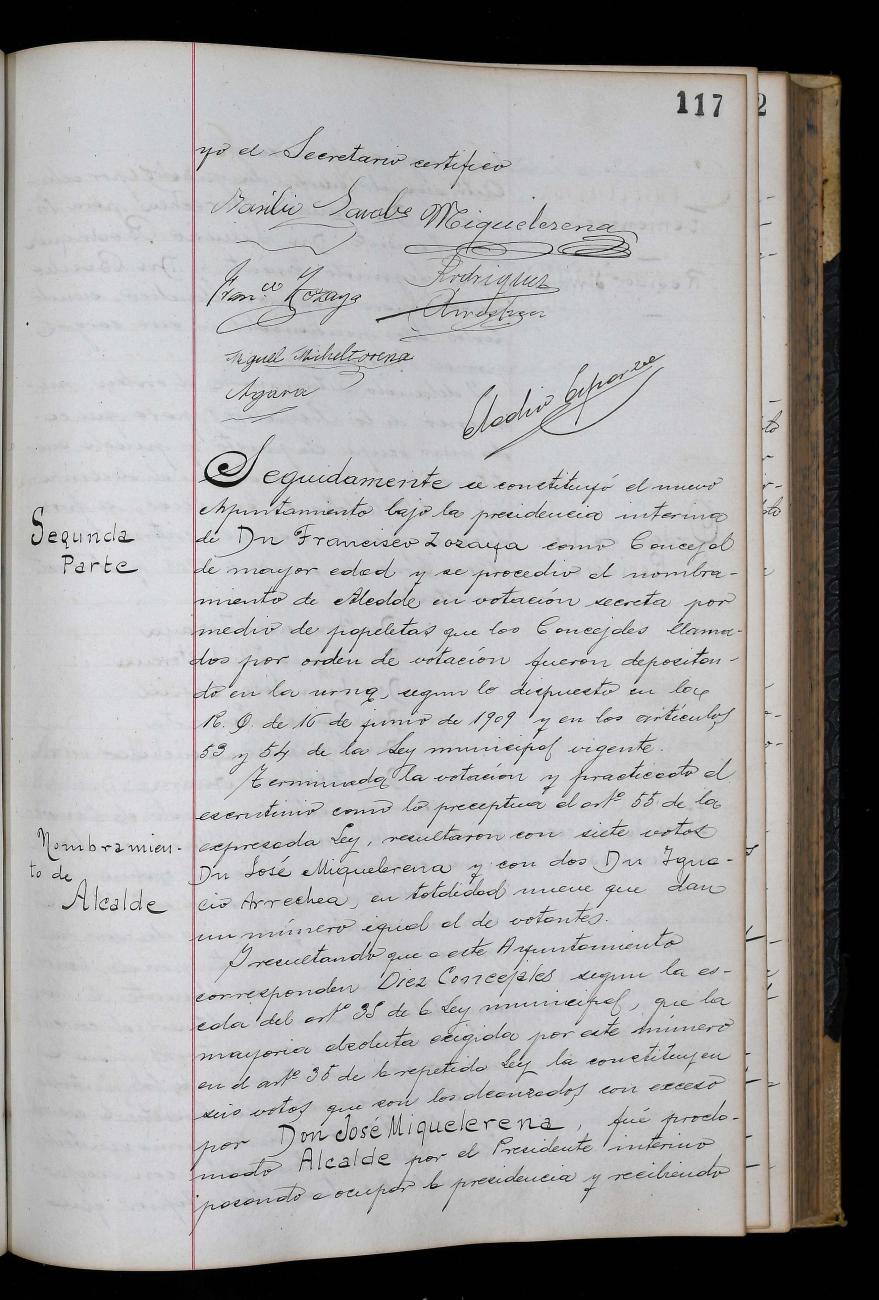 117
2
yo el Secretario certifico
Basilio Miquelerena
Rodriguez
Fran.co Zozaya
Arrechea
Miguel Micheltorena
Azpara
Eladio Esparza
Segunda
Parte
Seguidamente se constituyó el nuevo
Ayuntamiento bajo la presidencia interina
de Dn Francisco Zozaya como Concejal
de mayor edad y se procedio al nombra-
miento de Alcalde en votación secreta por
medio de papeletas que los Concejales llama-
dos por orden de votación fueron depositan-
do en la urna, segun lo dispuesto en la
R. O. de 16 de junio de 1909 y en los articulos
53 y 54 de la Ley municipal vigente.
Terminada la votación y practicado el
escrutinio como lo preceptua el artº 55 de la
Nombramien-
to de
Alcalde
expresada Ley, resultaron con siete votos
Dn José Miquelerena y con dos Dn Igna-
cio Arrechea, en totalidad nueve que dan
un número igual al de votantes.
Y resultando que a este Ayuntamiento
corresponden Diez Concejales segun la es-
cala del artº 35 de la Ley municipal, que la
mayoria absoluta exigida por este número
en el artº 36 de la repetida Ley la constituyen
seis votos que son los alcanzados con exceso
por Don José Miquelerena, fué procla-
mado Alcalde por el Presidente interino
pasando a ocupar la presidencia y recibiendo